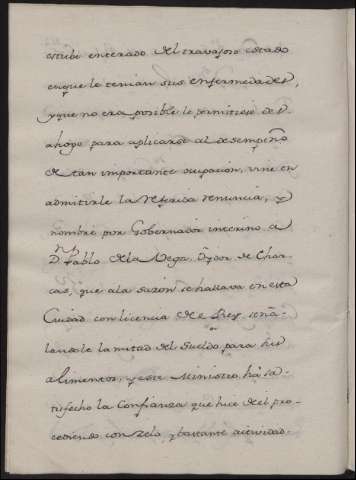 estube enterado del travajoso estado
enque le tenian sus enfermedades,
yque no era posible le permitiese des-
ahogo para aplicarse al desempeño
de tan importante ocupacion, vine en
admitirle la referida renuncia, y
nombré por Gobernador interino a
D.n Pablo dela Vega Oydor de Char-
cas, que ala sazon se hallava en esta
Ciudad con licencia de el Rey señá-
landole la mitad del sueldo para sus
alimentos, y este Ministro há sa-
tisfecho la Confianza que hice de el pro-
cediendo con zelo, y bastante actividad.